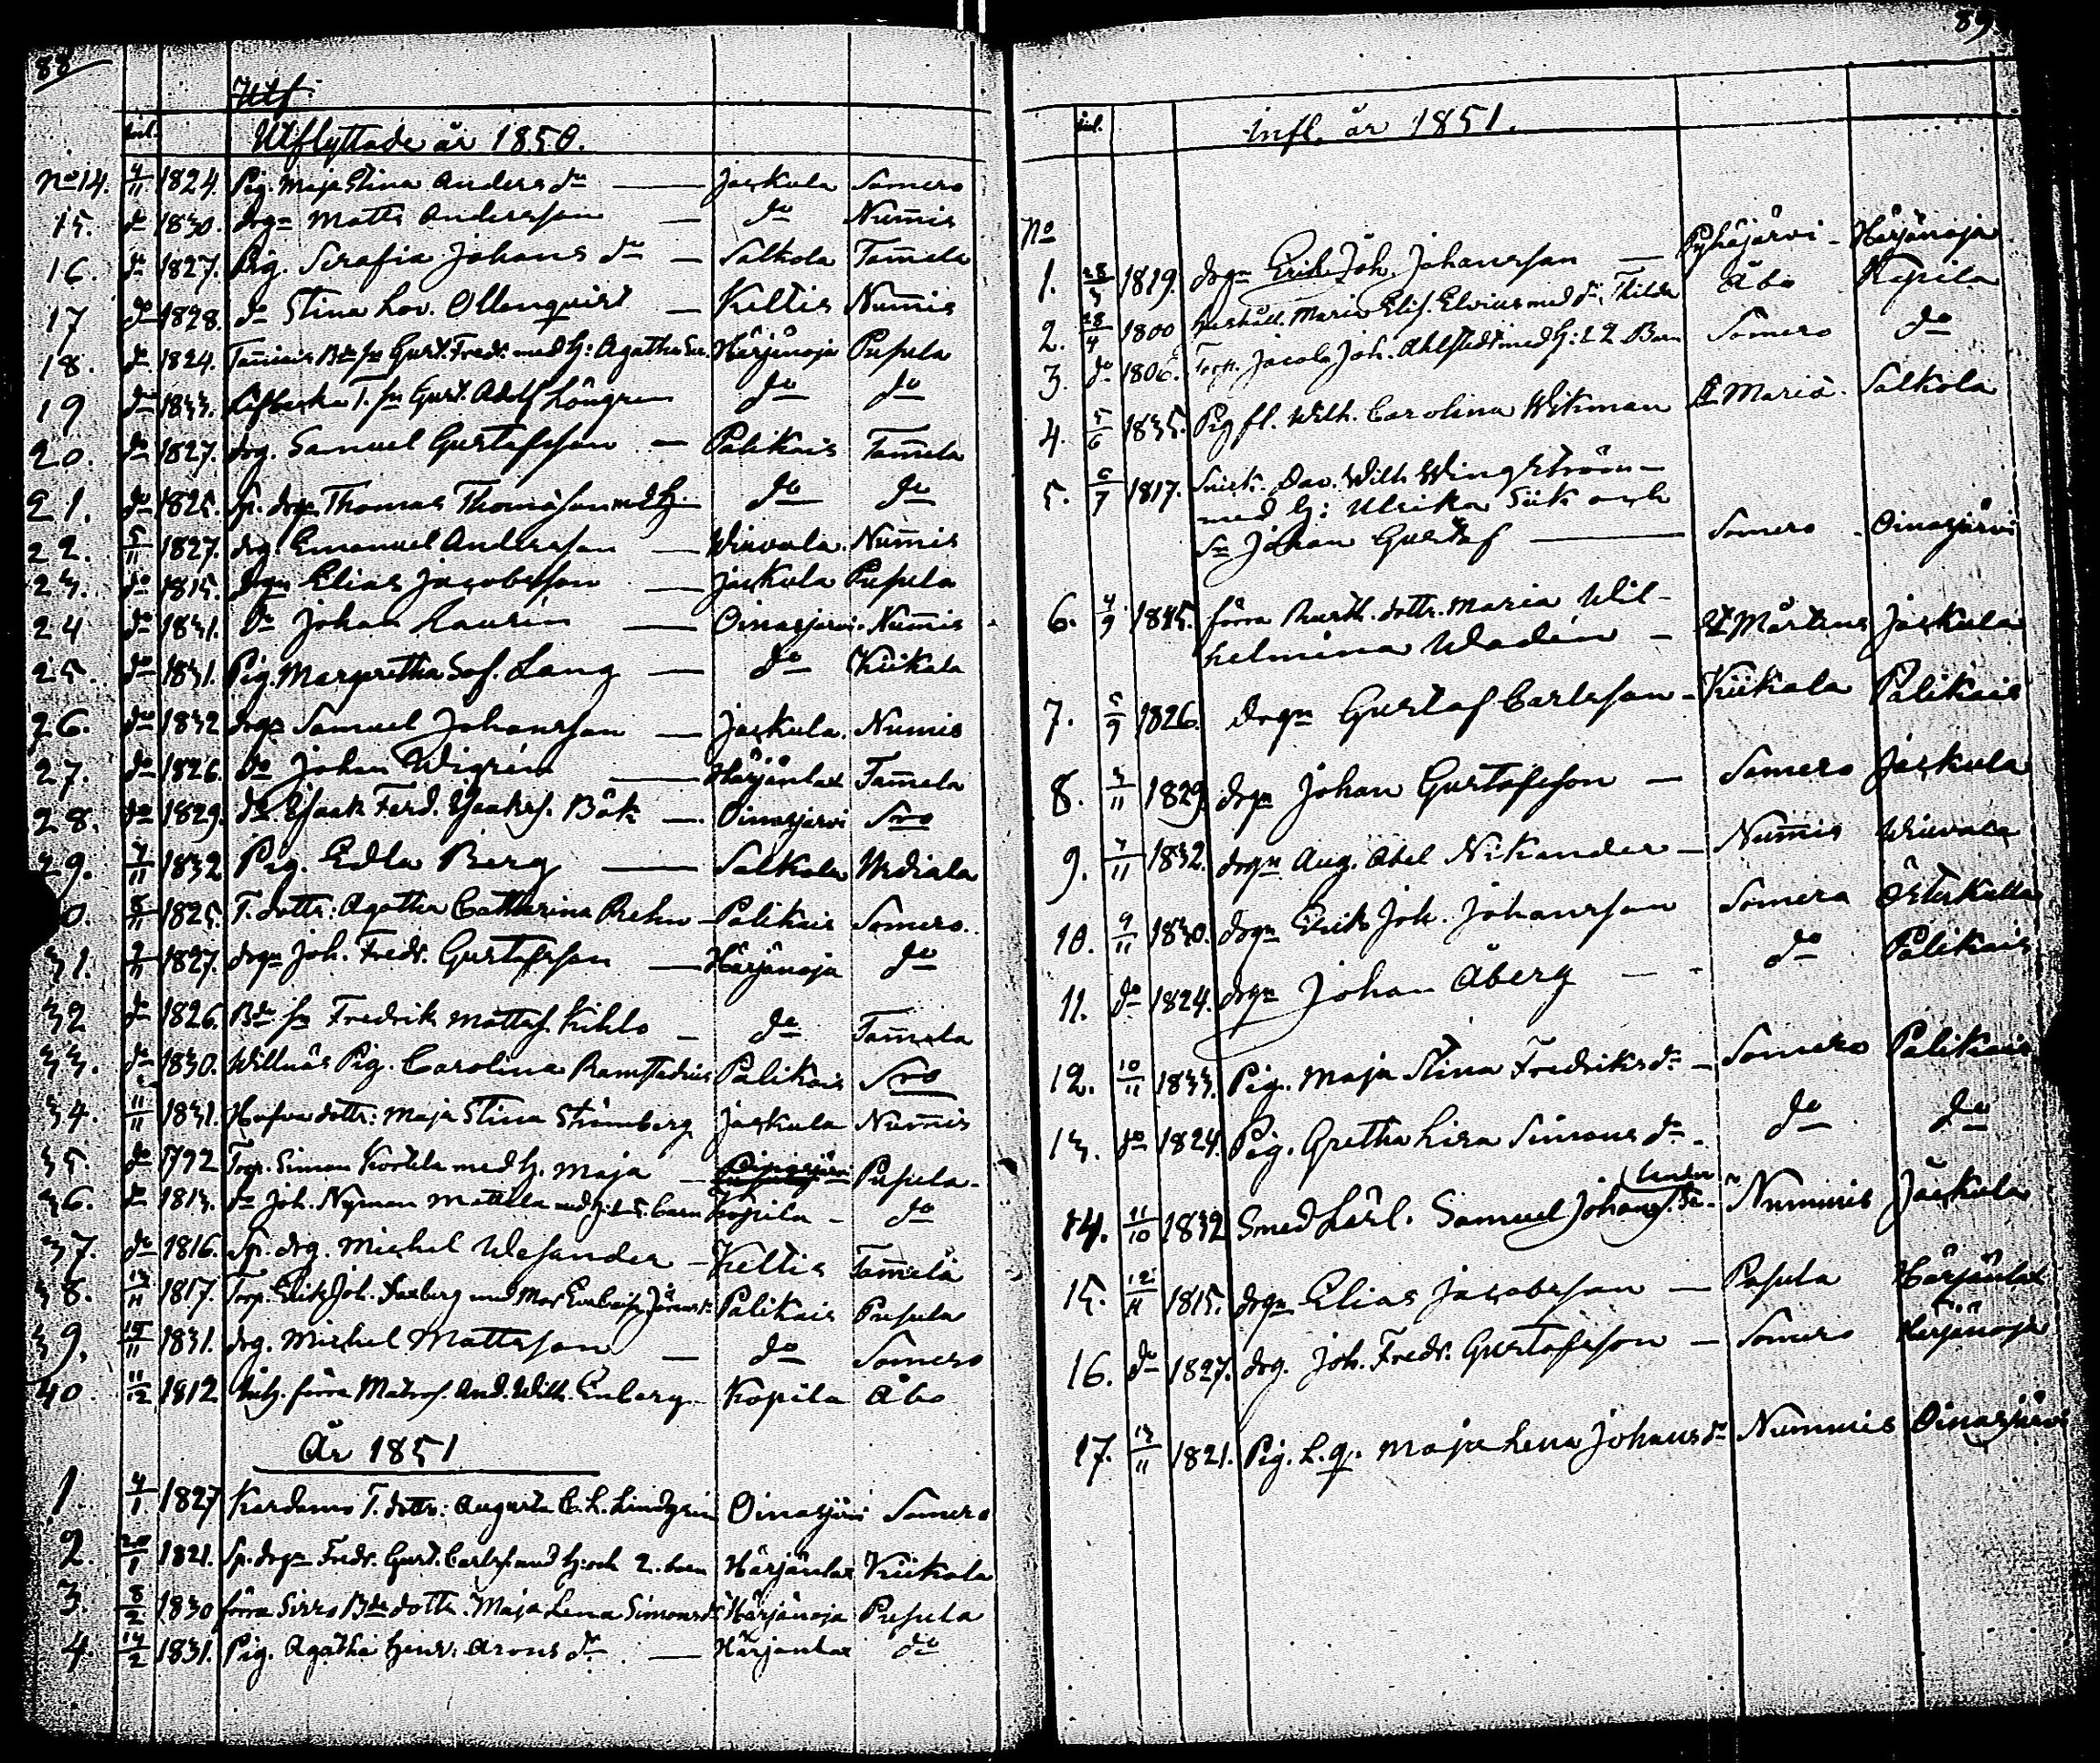 88
Utf:
Utflyttade år 1850.
No 14. 4/11 1824. Pig. Maja Stina Anders dr — Jaskula Somero
15. do 1830. drgn Matts Andersson — do Num̄is
16. do 1827. Pig. Serafia Johans dr — Salkola Tam̄ela
17 do 1828. do Stina Lov. Ollonquist — Keltis Num̄is
18. do 1824. Bde sn Gust. Fredr. med h: Agatha Härjänoja Pusula
19 do 1833. T. sn Gust. Adolf Löngren do do
20. do 1827. drg. Samuel Gustafsson — Palikais Tam̄ela
21. do 1825. Sp. drgn Thomas Thomasson med h. do do
22. 5/11 1827. drg. Emanuel Andersson — Wiuvala. Num̄is
23. do 1815. drgn Elias Jacobsson — Jaskula Pusula
24 do 1831. do Johan Laurin — Oinasjärvi. Num̄is
25. do 1831. Pig. Margretha Sof. Lang — do Kiikala
26. do 1832 drgn Samuel Johansson — Jaskula. Numis
27. do 1826. do Johan Wigrén — Härjänlax Tam̄ela
28. do 1829. do Isaak Ferd. Isaakss. Böök — Oinasjärvi Sro
29. 7/11 1832 Pig. Edla Berg — Salkola Urdiala
0. 8/11 1825. T. dottr: Agatha Catharina Rehn — Palikais Somero.
31. 9/11 1827. drgn Joh. Fredr. Gustafsson — Härjänoja do
32 do 1826. Bde sn Fredrik Mattss. Kihlo — do Tam̄ela
33. do 1830. Willnäs Pig. Carolina Ramstadius Palikais Sro
34. 11/11 1831. dottr: Maja Stina Strömberg Jaskula Num̄is
35. do 1792 Torp. Simon Korkla med h. Maja — Pusula.
36. do 1813. do Joh. Nyman Mattila med h: & 5. barn Kopila — do
37. do 1816. Sp. drg. Michel Wesander — Keltis Tam̄ela
38. 13/11 1817. Torp. Erik Joh. Palikais Pusula
39. 15/11 1831. drg. Michel Mattsson — do Somero
40. 11/12 1812 Inh. förra Matros. And. Wilh. Enberg Kopila Åbo
År 1851
1. 4/1 1827 Kardums T. dottr: Augusta C. L. Lindgren Oinasjärvi Somero
2. 20/1 1821. Sp. drgn Fredr. Gust. Carlss. med h: och 2. barn Härjänlax Kiikala
3. 8/2 1830 förra Sirro Bde dottr. Maja Lena Simonsdr Härjänoja Pusula
4. 14/2 1831. Pig. Agatha Henr: Arons dr — Härjänlax do
89.
Infl. år 1851.
No
1. 28/3 1819. drgn Erik Joh. Johansson — Pyhäjärvi — Härjänoja
2. 28/4 1800 Hushåll. Maria Elis. Elvius med dr. Thilda Åbo Kopila
3. do 1806. Torp. Jacob Joh. Ahlstedt med h: & 2 Barn Somero do
4. 5/6 1835. Pig fl. Wilh. Carolina Wikman St Mariæ. Salkola
5. 6/7 1817. Snick. Dav. Wilh. Wingström —
med h: Ulrika Siik och
Sn Johan Gustaf — Somero. Oinasjärvi
6. 4/9 1815. förra Rusth. dottr. Maria Wil-
helmina Wadén — St Mårtens Jaskula
7. 5/9 1826. drgn Gustaf Carlsson — Kiikala Palikais
8. 3/11 1829 drgn Johan Gustafsson — Somero Jaskula
9. 7/11 1832. drgn Aug. Abel Nikander — Num̄is Wiuvala
10. 9/11 1830. drgn Erik Joh. Johansson Somero Österkulla
11. do 1824. drgn Johan Åberg — do Palikais
12. 10/11 1833. Pig. Maja Stina Fredriks dr — Somero Palikais
13. do 1824. Pig. Gretha Lisa Simons dr. do do
14. 11/10 1832 Smed Lärl. Samuel Johanss. Nummis Jaskula
15. 12/11 1815. drgn Elias Jacobsson — Pusula Härjänlax
16. do 1827. drg. Joh. Fredr. Gustafsson — Somero Härjänoja
17. 13/11 1821. Pig. L. q. Maja Lena Johans dr Nummis Oinasjärvi